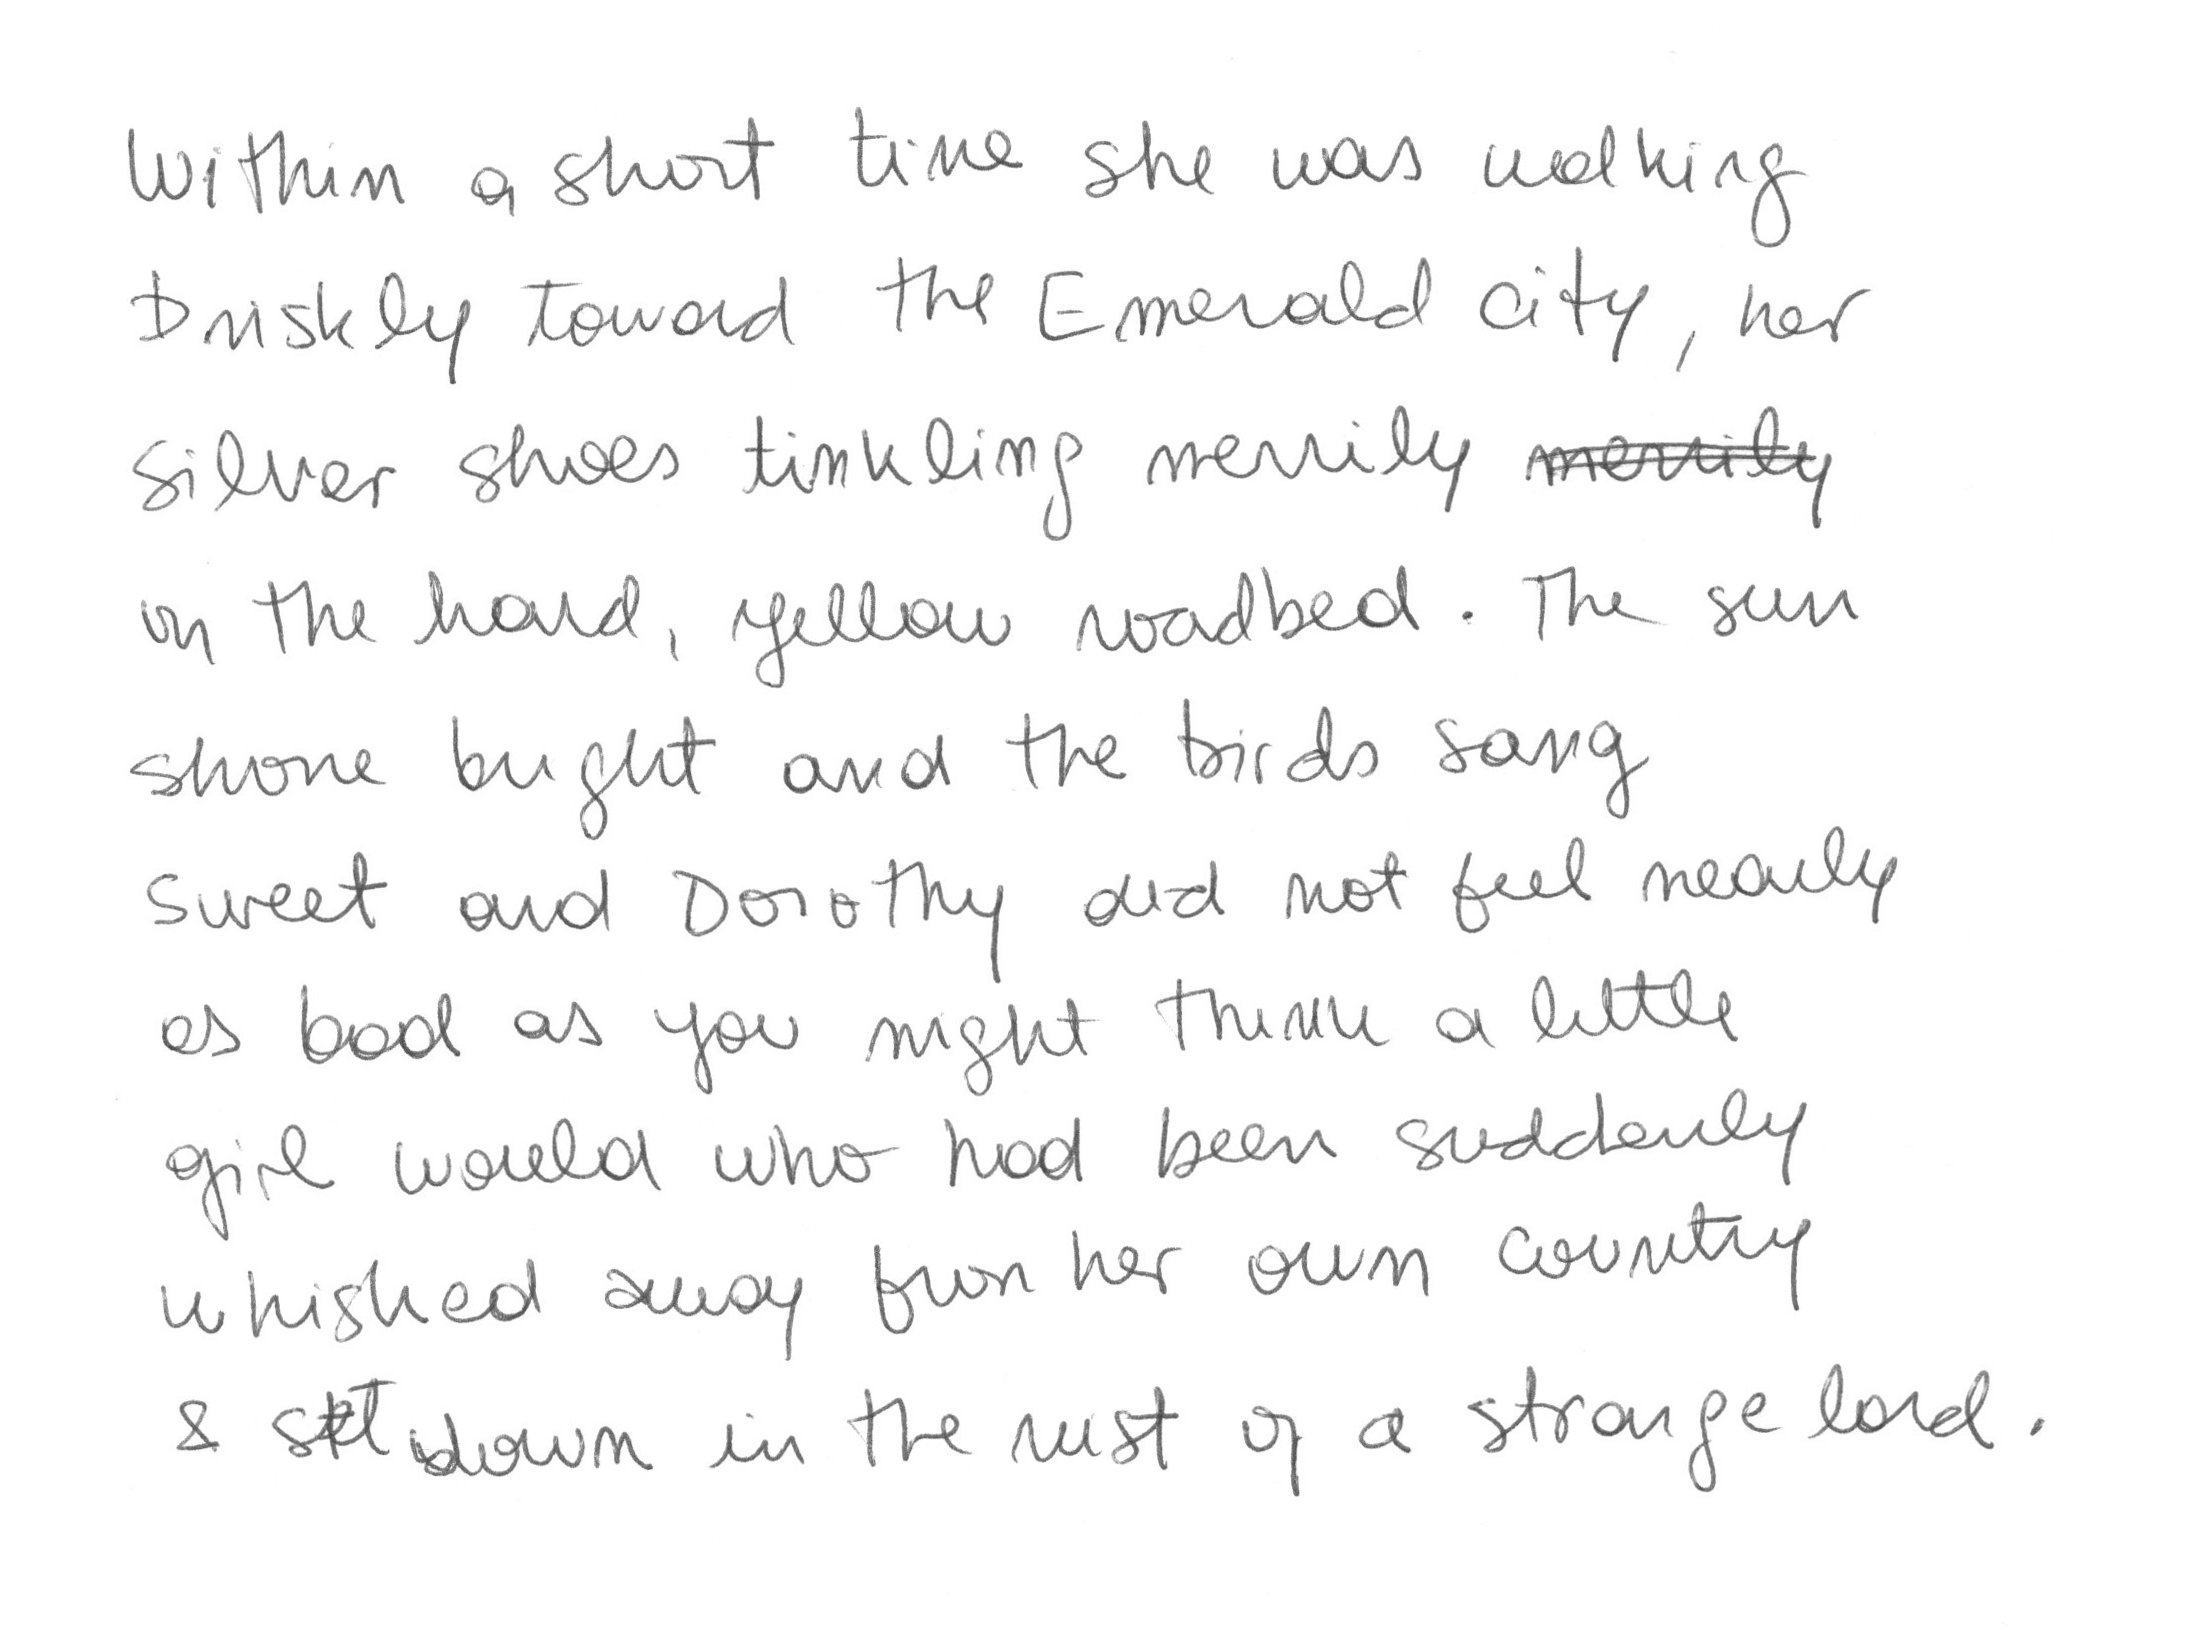 Within a short time she was walking
briskly toward the Emerald City, her
silver shoes tinkling merrily ~~merrily~~
on the hard, yellow roadbed. The sun
shone bright and the birds sang
sweet and Dorothy did not feel nearly
as bad as you might think a little
girl would who had been suddenly
whished away from her own country
& set down in the mist of a strange land.